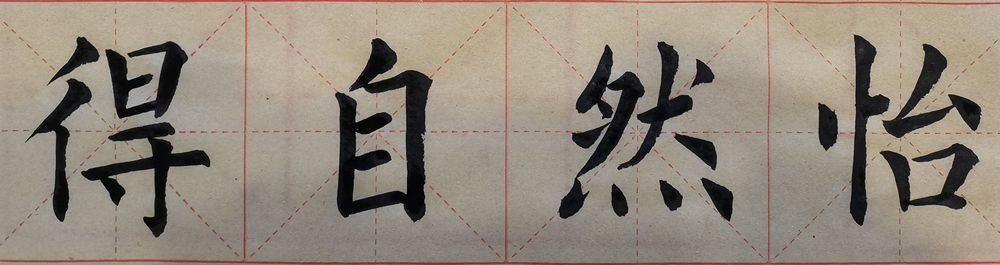 得自然怡